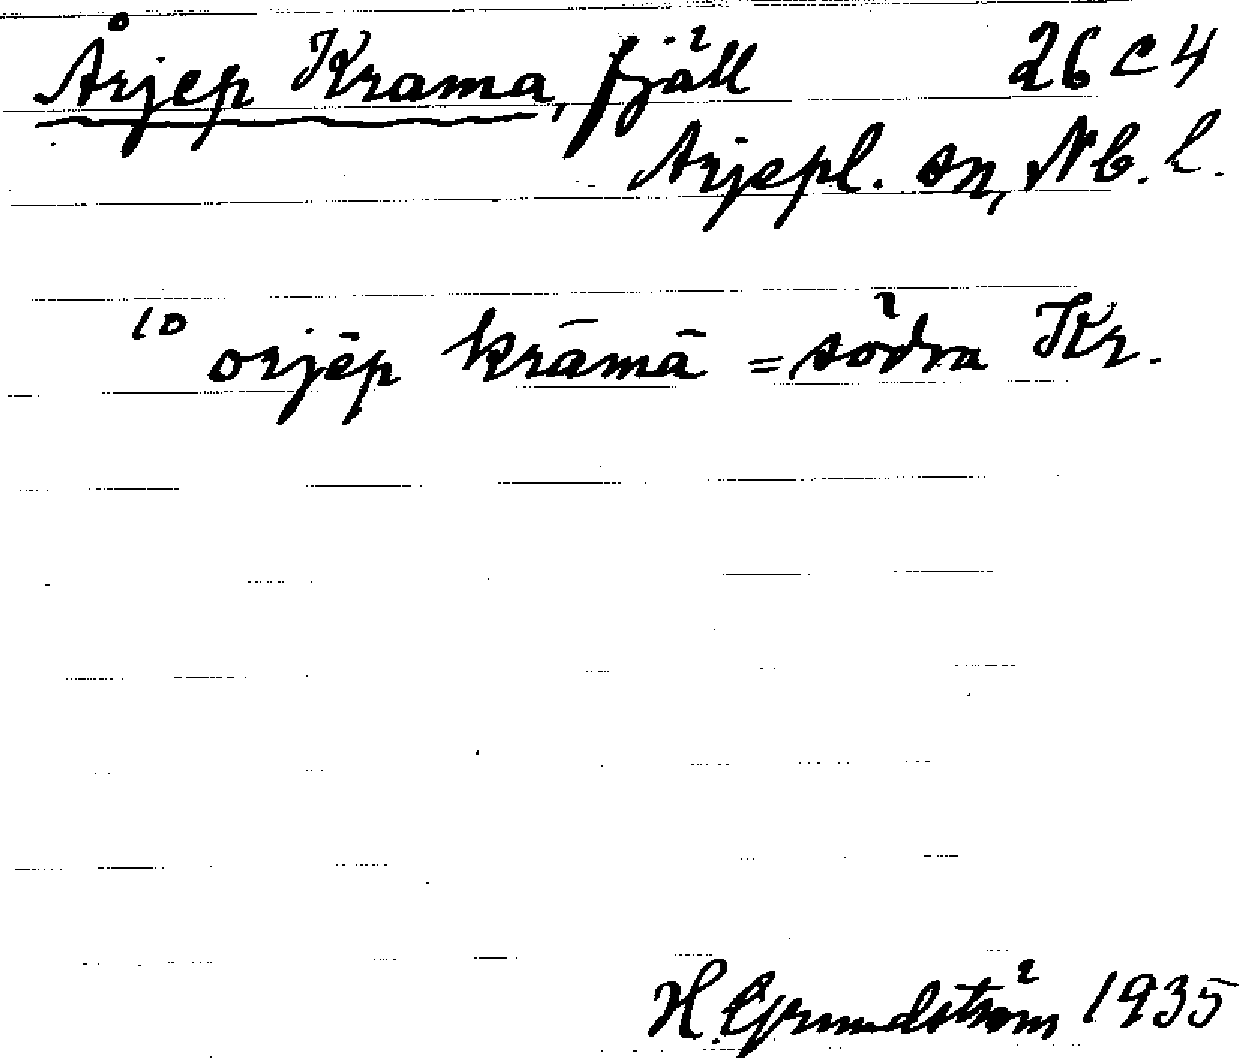 Årjep Krama, fjäll 26 C 4
Arjepl. sn, Nb. l.
10 orjēp krāmā = södra Kr.
H. Grundström 1935